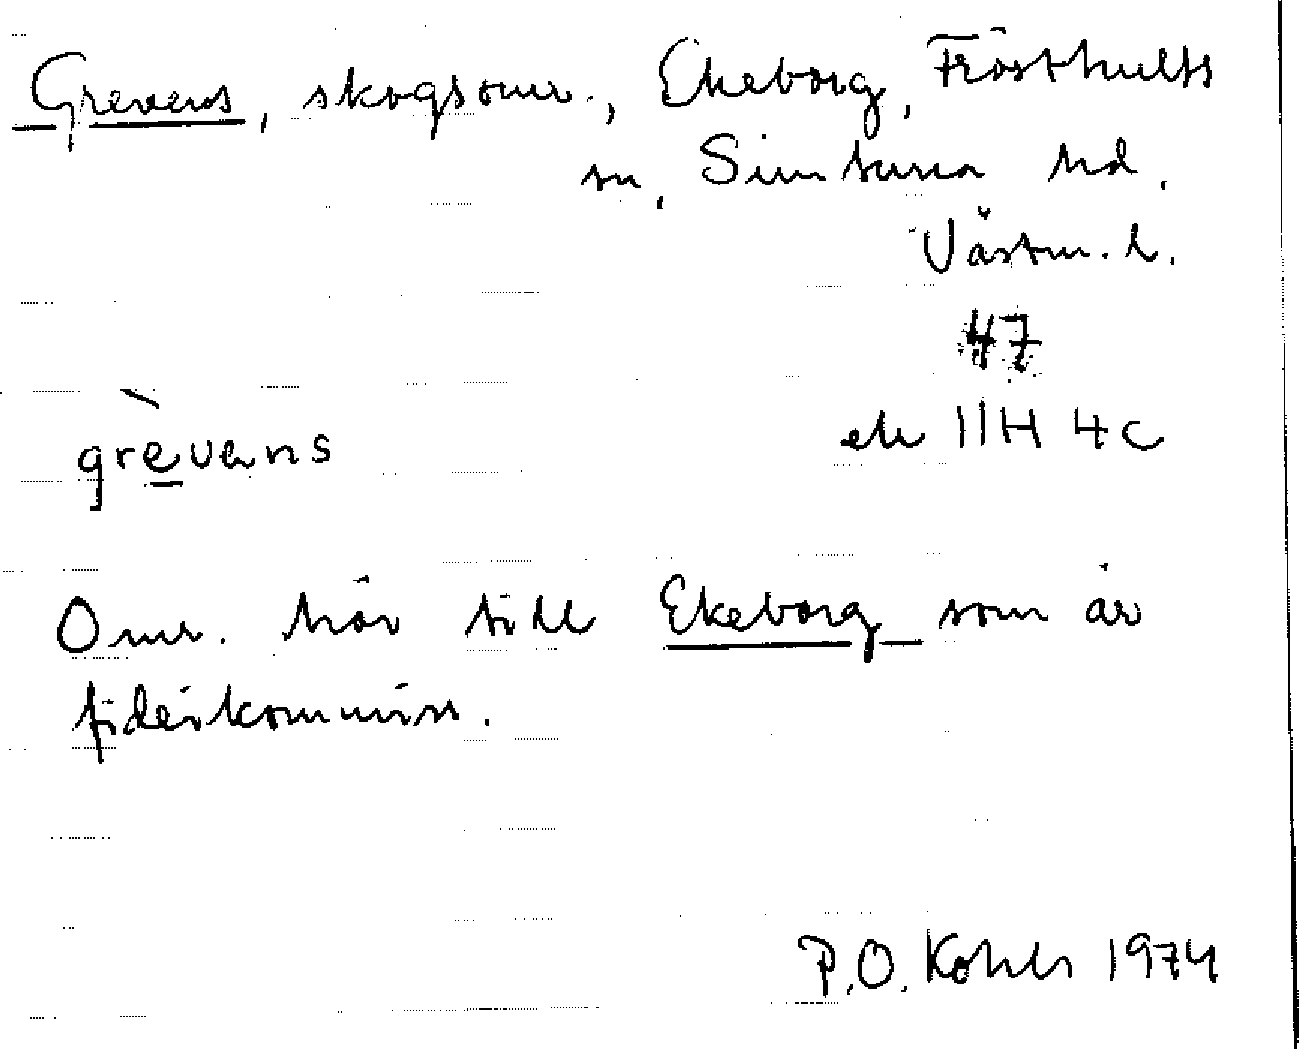 Grevens, skogsomr., Ekeborg, Frösthults
sn, Simtuna hd.
Västm. l.
47
ek 11H 4c
grèvens
Omr. hör till Ekeborg som är
fideikommiss.
P.O. Kohls 1974